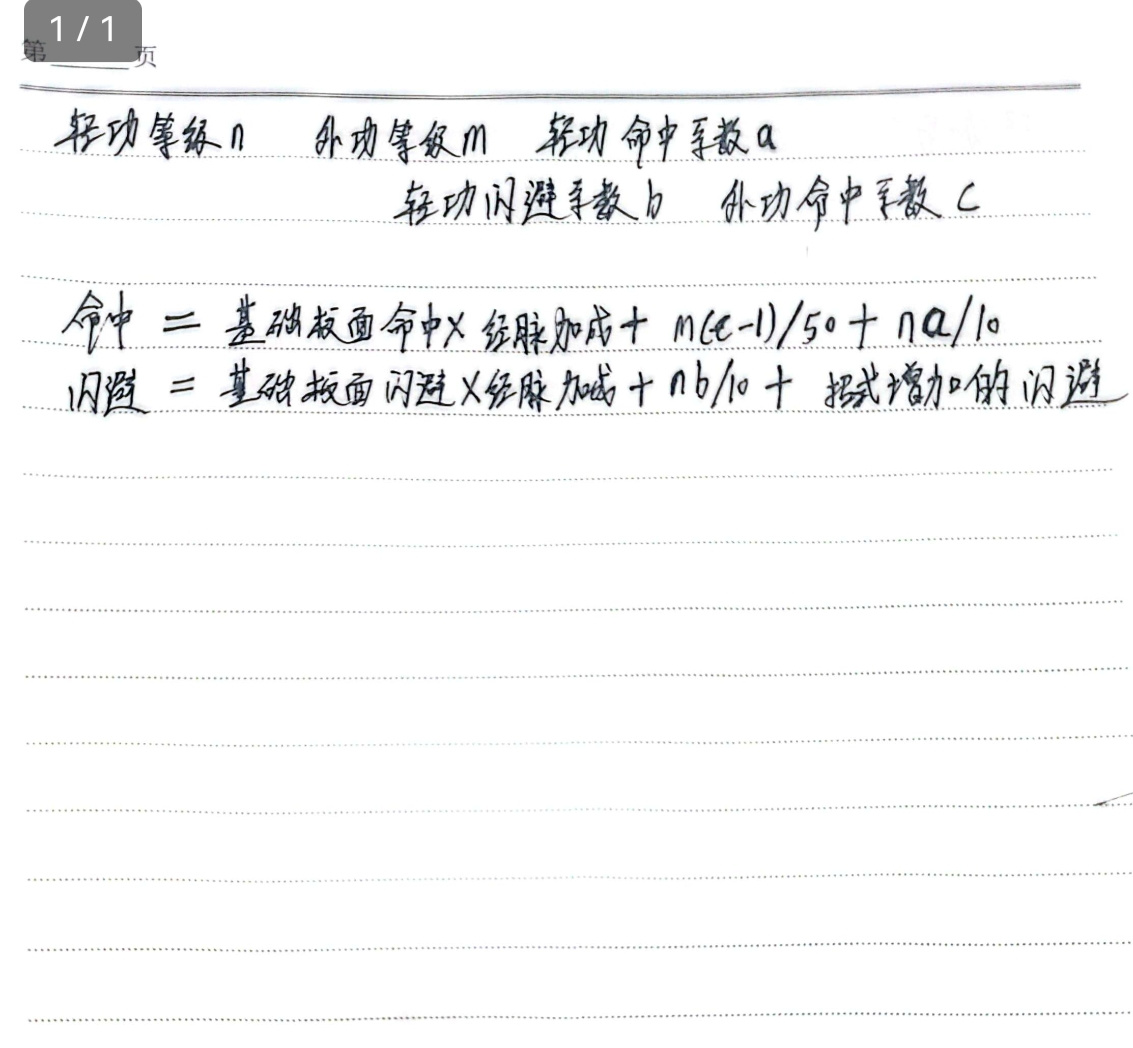 1 / 1
第 页
轻功等级n 外功等级m 轻功命中系数a
轻功闪避系数b 外功命中系数c
命中 = 基础板面命中×经脉加成+ m(c-1)/50+na/10
闪避 = 基础板面闪避×经脉加成+nb/10+ 招式增加的闪避